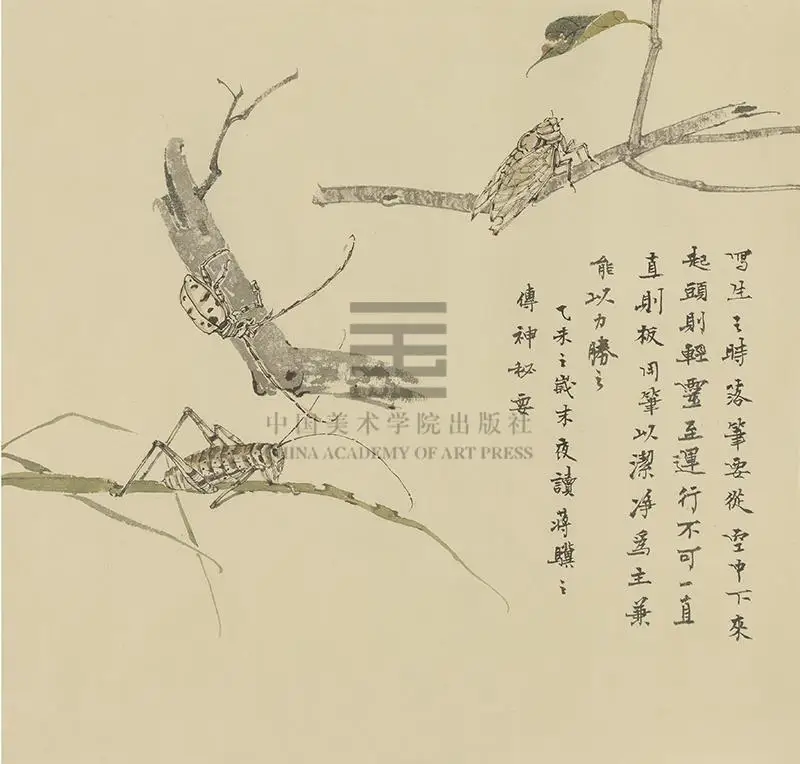 寫生之時落筆要從空中下來
起頭則輕靈至運行不可一直
直則板用筆以潔淨爲主兼
能以力勝之
乙未之歲末夜讀蔣驥之
傳神秘要
中国美术学院出版社
CHINA ACADEMY OF ART PRESS